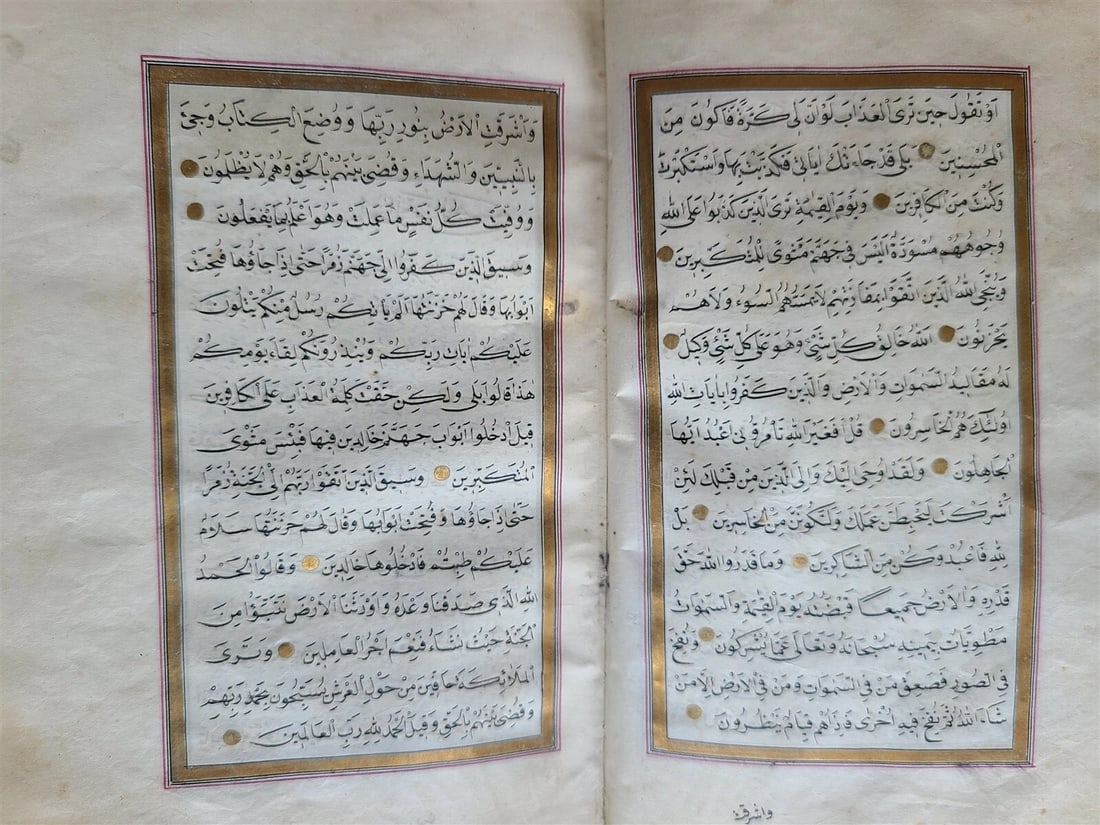 اَوْ تَقُولَ حِينَ تَرَى الْعَذَابَ لَوْ اَنَّ لِى كَرَّةً فَاَكُونَ مِنَ
الْمُحْسِنِينَ بَلَى قَدْ جَاءَتْكَ اٰيَاتِى فَكَذَّبْتَ بِهَا وَاسْتَكْبَرْتَ
وَكُنْتَ مِنَ الْكَافِرِينَ وَيَوْمَ الْقِيٰمَةِ تَرَى الَّذِينَ كَذَبُوا عَلَى اللهِ
وُجُوهُهُمْ مُسْوَدَّةٌ اَلَيْسَ فِى جَهَنَّمَ مَثْوًى لِلْمُتَكَبِّرِينَ
وَيُنَجِّى اللهُ الَّذِينَ اتَّقَوْا بِمَفَازَتِهِمْ لَا يَمَسُّهُمُ السُّوءُ وَلَا هُمْ
يَحْزَنُونَ اَللهُ خَالِقُ كُلِّ شَىْءٍ وَهُوَ عَلَى كُلِّ شَىْءٍ وَكِيلٌ
لَهُ مَقَالِيدُ السَّمٰوَاتِ وَالْاَرْضِ وَالَّذِينَ كَفَرُوا بِاٰيَاتِ اللهِ
اُولٰئِكَ هُمُ الْخَاسِرُونَ قُلْ اَفَغَيْرَ اللهِ تَأْمُرُونِّى اَعْبُدُ اَيُّهَا
الْجَاهِلُونَ وَلَقَدْ اُوحِىَ اِلَيْكَ وَاِلَى الَّذِينَ مِنْ قَبْلِكَ لَئِنْ
اَشْرَكْتَ لَيَحْبَطَنَّ عَمَلُكَ وَلَتَكُونَنَّ مِنَ الْخَاسِرِينَ بَلِ
اللهَ فَاعْبُدْ وَكُنْ مِنَ الشَّاكِرِينَ وَمَا قَدَرُوا اللهَ حَقَّ
قَدْرِهِ وَالْاَرْضُ جَمِيعًا قَبْضَتُهُ يَوْمَ الْقِيٰمَةِ وَالسَّمٰوَاتُ
مَطْوِيَّاتٌ بِيَمِينِهِ سُبْحَانَهُ وَتَعَالَى عَمَّا يُشْرِكُونَ وَنُفِخَ
فِى الصُّورِ فَصَعِقَ مَنْ فِى السَّمٰوَاتِ وَمَنْ فِى الْاَرْضِ اِلَّا مَنْ
شَاءَ اللهُ ثُمَّ نُفِخَ فِيهِ اُخْرَى فَاِذَا هُمْ قِيَامٌ يَنْظُرُونَ
واشرقت
وَاَشْرَقَتِ الْاَرْضُ بِنُورِ رَبِّهَا وَوُضِعَ الْكِتَابُ وَجِىءَ
بِالنَّبِيّٖنَ وَالشُّهَدَاءِ وَقُضِىَ بَيْنَهُمْ بِالْحَقِّ وَهُمْ لَا يُظْلَمُونَ
وَوُفِّيَتْ كُلُّ نَفْسٍ مَا عَمِلَتْ وَهُوَ اَعْلَمُ بِمَا يَفْعَلُونَ
وَسِيقَ الَّذِينَ كَفَرُوا اِلَى جَهَنَّمَ زُمَرًا حَتَّى اِذَا جَاؤُهَا فُتِحَتْ
اَبْوَابُهَا وَقَالَ لَهُمْ خَزَنَتُهَا اَلَمْ يَأْتِكُمْ رُسُلٌ مِنْكُمْ يَتْلُونَ
عَلَيْكُمْ اٰيَاتِ رَبِّكُمْ وَيُنْذِرُونَكُمْ لِقَاءَ يَوْمِكُمْ
هٰذَا قَالُوا بَلَى وَلٰكِنْ حَقَّتْ كَلِمَةُ الْعَذَابِ عَلَى الْكَافِرِينَ
قِيلَ ادْخُلُوا اَبْوَابَ جَهَنَّمَ خَالِدِينَ فِيهَا فَبِئْسَ مَثْوَى
الْمُتَكَبِّرِينَ وَسِيقَ الَّذِينَ اتَّقَوْا رَبَّهُمْ اِلَى الْجَنَّةِ زُمَرًا
حَتَّى اِذَا جَاؤُهَا وَفُتِحَتْ اَبْوَابُهَا وَقَالَ لَهُمْ خَزَنَتُهَا سَلَامٌ
عَلَيْكُمْ طِبْتُمْ فَادْخُلُوهَا خَالِدِينَ وَقَالُوا الْحَمْدُ
لِلّٰهِ الَّذِى صَدَقَنَا وَعْدَهُ وَاَوْرَثَنَا الْاَرْضَ نَتَبَوَّأُ مِنَ
الْجَنَّةِ حَيْثُ نَشَاءُ فَنِعْمَ اَجْرُ الْعَامِلِينَ وَتَرَى
الْمَلٰئِكَةَ حَافِّينَ مِنْ حَوْلِ الْعَرْشِ يُسَبِّحُونَ بِحَمْدِ رَبِّهِمْ
وَقُضِىَ بَيْنَهُمْ بِالْحَقِّ وَقِيلَ الْحَمْدُ لِلّٰهِ رَبِّ الْعَالَمِينَ